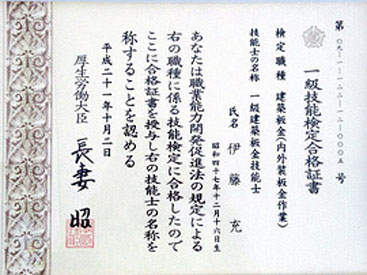 第〇九-一-一二二-一二-〇〇〇五号
一級技能検定合格証書
検定職種 建築板金(内外装板金作業)
技能士の名称 一級建築板金技能士
氏名 伊藤充
昭和四十七年十二月十六日生
あなたは職業能力開発促進法の規定による
右の職種に係る技能検定に合格したので
ここに合格証書を授与し右の技能士の名称を
称することを認める
平成二十一年十月二日
厚生労働大臣 長妻昭